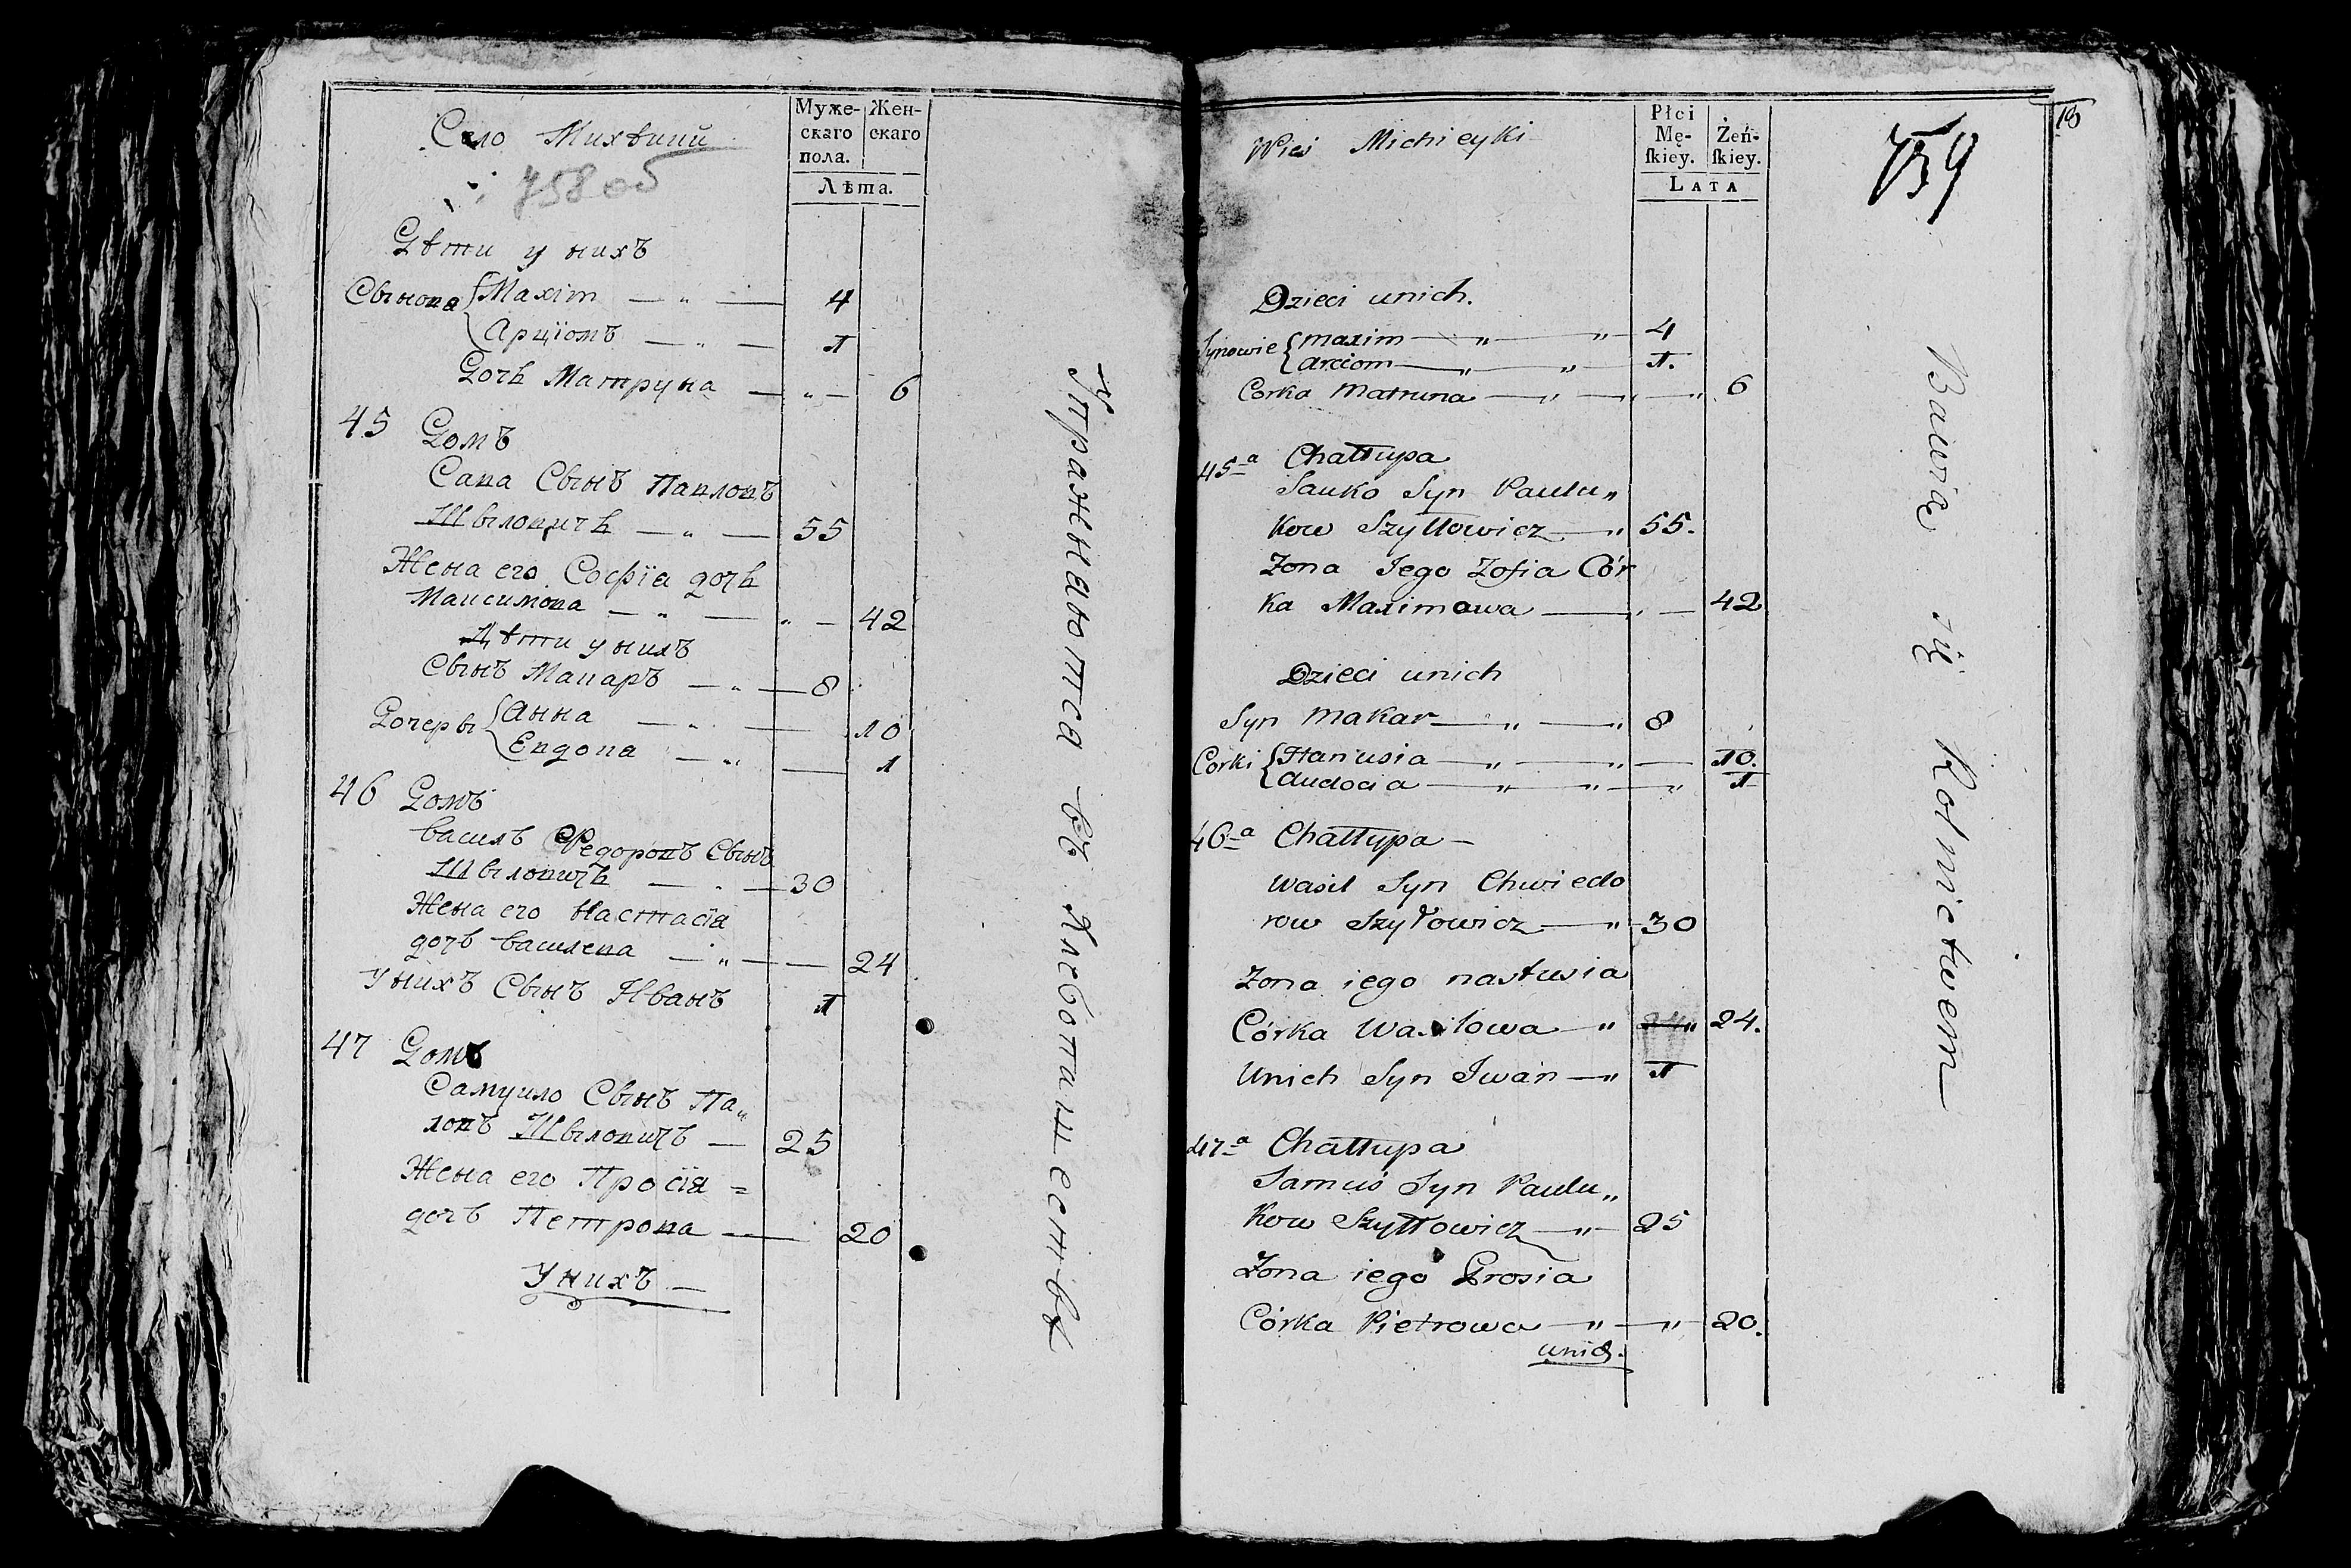 Село Михѣики
758 об
Муже-
скаго
пола.
Жен-
скаго
Лѣта.
Дѣти у нихъ
Сынова { Maxim — „ — 4
Арціомъ — „ — 1
Дочь Матруна — „ — 6
45 Домъ
Сава Сынъ Павловъ
Шыловичь — „ — 55
Жена его Софія дочь
Максимова — „ — „ — 42
Дѣти у нихъ
Сынъ Макаръ — „ — 8
Дочеры { Анна — „ — 10
Евдова — „ — 1
46 Домъ
Василь Федоровъ Сынъ
Шыловичь — „ — 30
Жена его Настасія
дочъ Василева — „ — 24
У нихъ Сынъ Иванъ 1
47 Домъ
Самуило Сынъ Па„
ловъ Шыловичъ — 25
Жена его Просія =
дочъ Петрова — 20
У нихъ —
Упражнаютса въ Хлебопашествѣ
Wieś Michieyki
Płci
Mę-
ſkiey.
Żeń-
ſkiey.
LATA
759
18
Dzieci unich.
Synowie { Maxim — „ — „ — 4
Arciom — „ — „ — 1.
Corka Matruna — „ — „ — „ 6
45a Chałłupa
Sauko Syn Paulu„
kow Szyłłowicz — „ 55.
Zona Jego Zofia Cór
ka Maximowa — „ — 42
Dzieci unich
Syn Makar — „ — „ 8
Corki { Hanusia — „ — „ — 10.
Audocia — „ — „ — „ 1
46a Chałłupa —
Wasil Syn Chwiedo
row Szyłowicz — „ 30
Zona iego nastusia
Córka Wasilowa — „ 24.
Unich Syn Iwan — „ 1
47a Chałłupa
Samuś Syn Paulu„
kow Szyłłowicz — „ — 25
Zona iego Prosia
Córka Pietrowa — „ — „ — 20.
unich.
Bawią się Rolnictwem